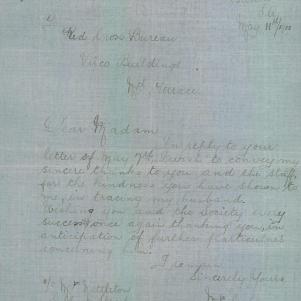 May 11th
Red Cross Bureau
Verco Buildings
Nth Terrace
Dear Madam
In reply to your
letter of May 7th I wish to convey my
sincere thanks to you and the staff
for the kindness you have shown to
me, in tracing my husband.
Wishing you and the Society every
success, once again thanking you, in
anticipation of further particulars
concerning him
I remain
Sincerely Yours
c/o Mr Nettleton